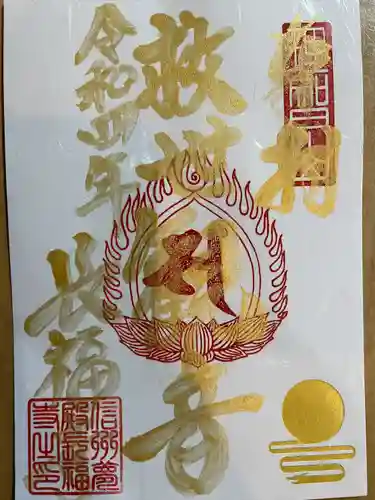 奉拝
救世観音
令和四年
長福
信州夢
殿長福
寺之印